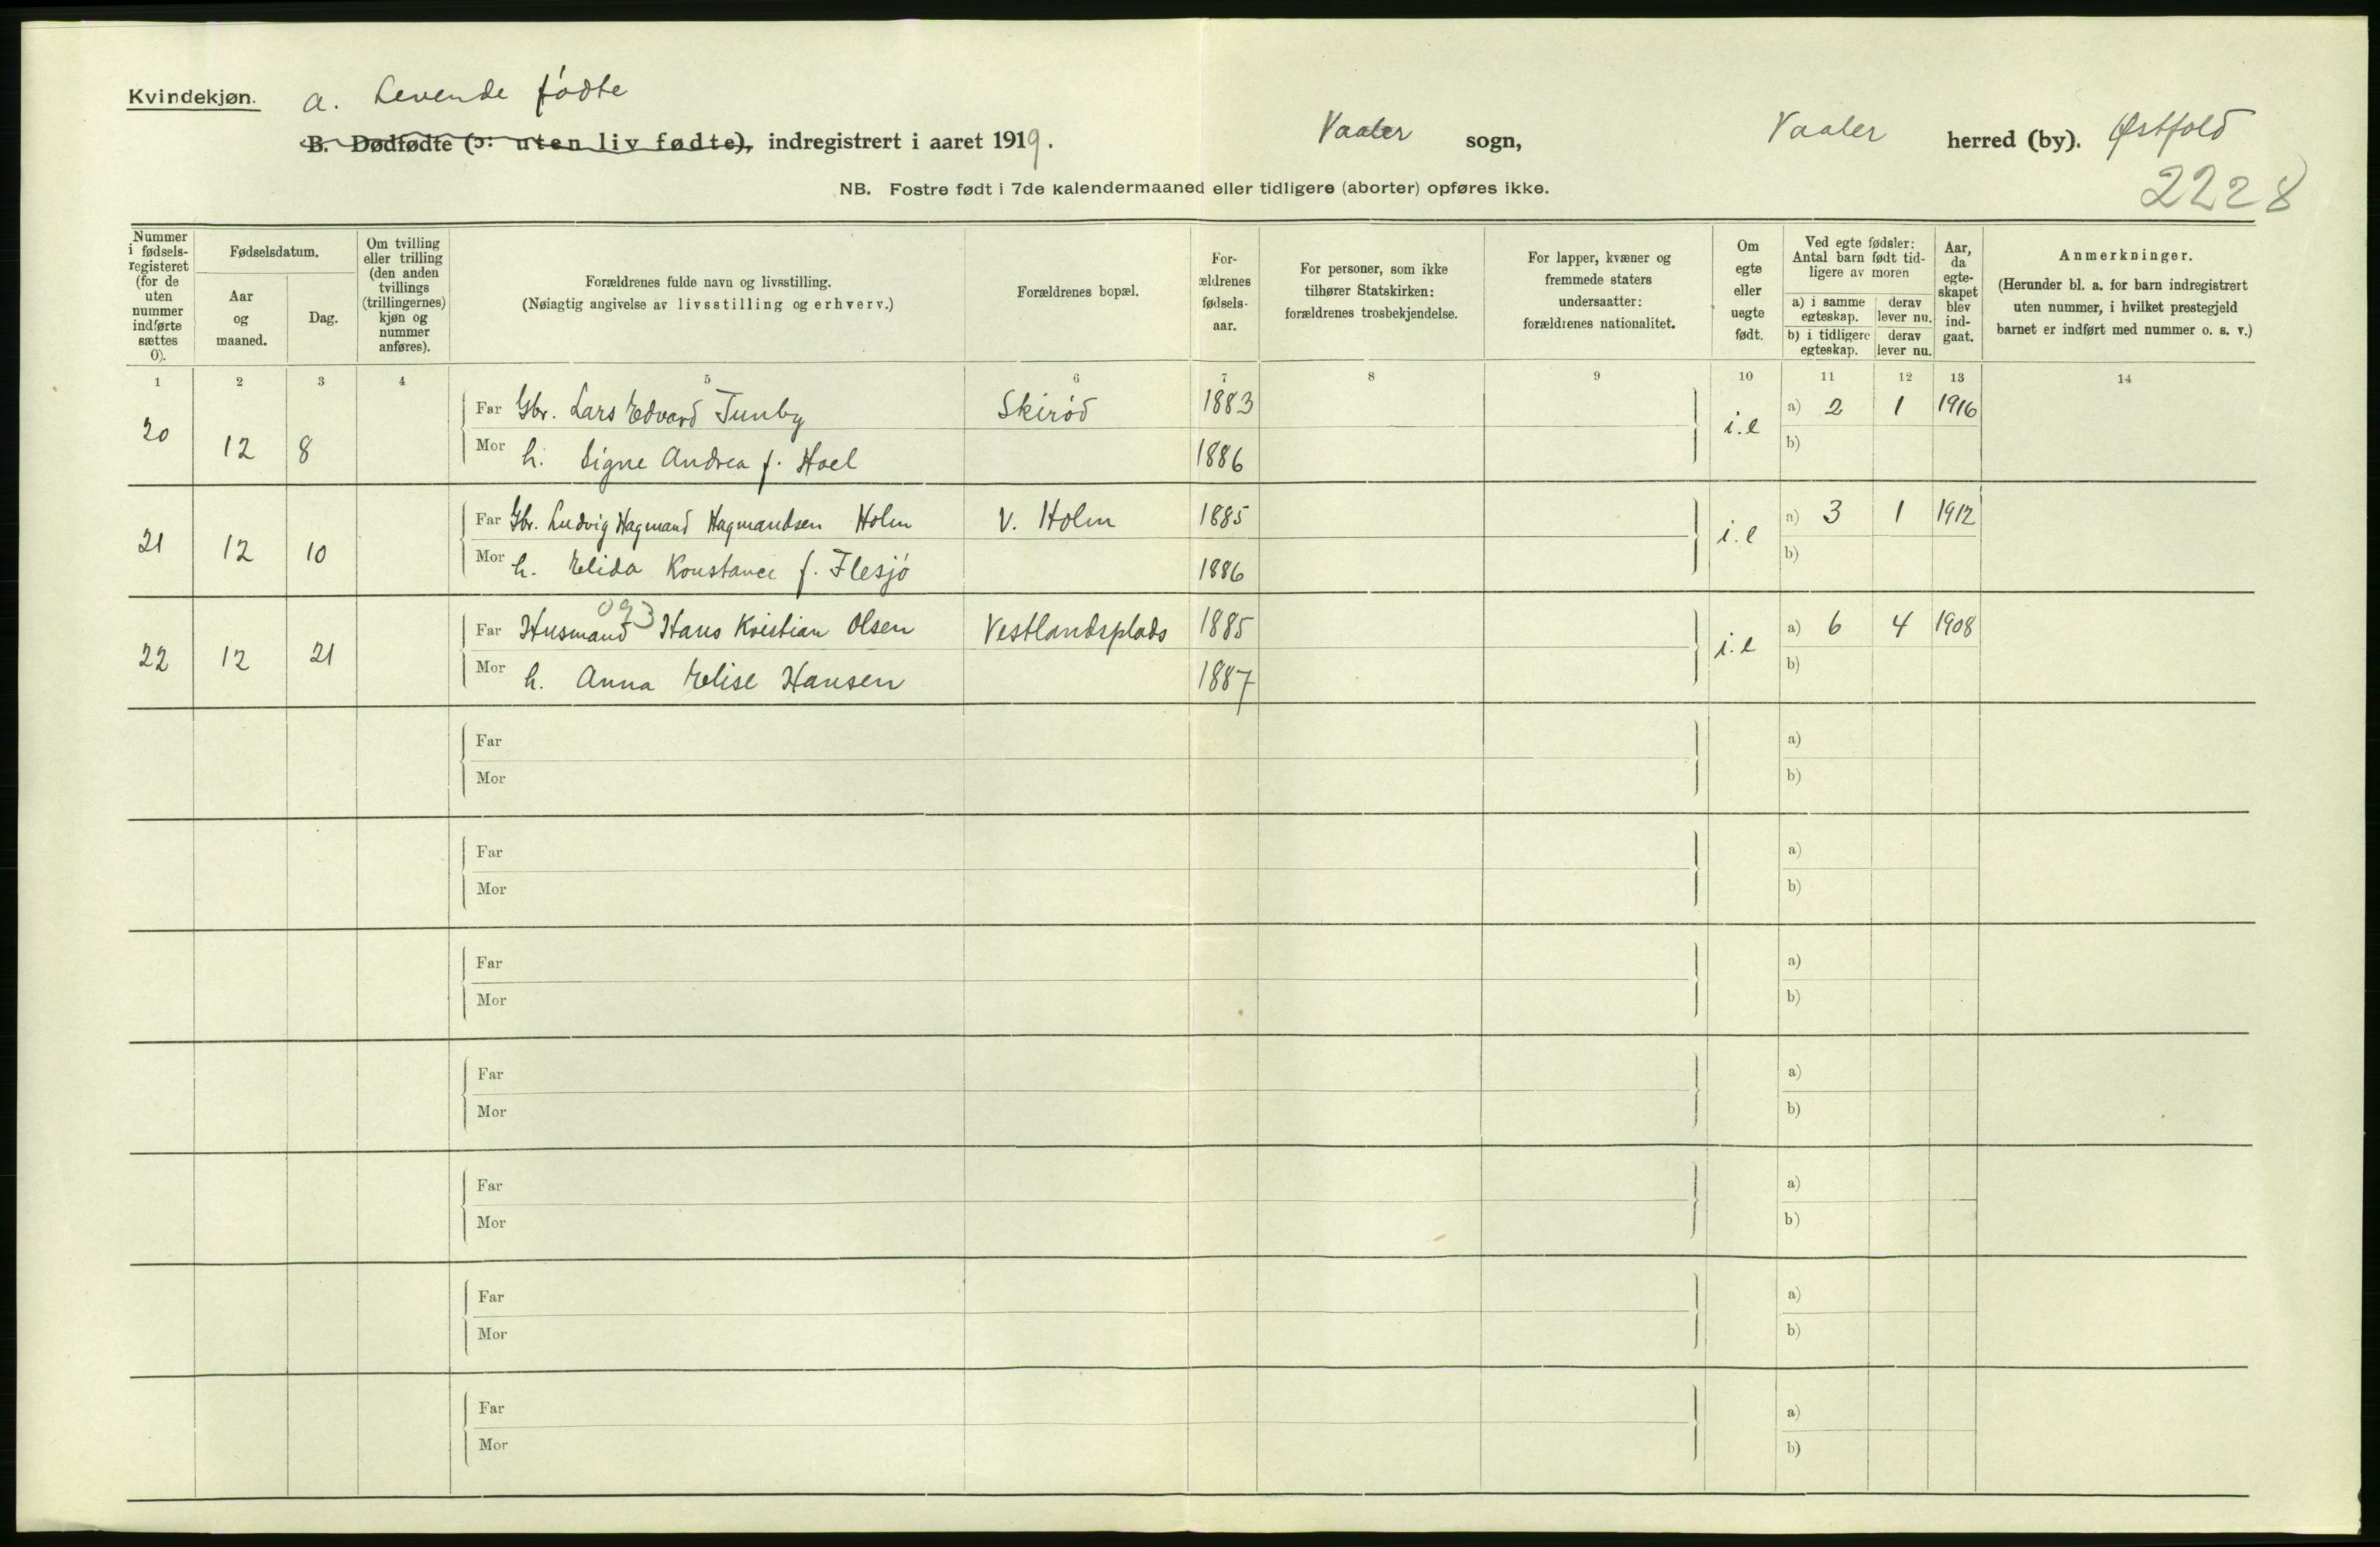 Kvindekjøn. a. Levende fødte
B. Dødfødte (ɔ: uten liv fødte), indregistrert i aaret 1919. Vaaler sogn, Vaaler herred (by). Østfold
2228
NB. Fostre født i 7de kalendermaaned eller tidligere (aborter) opføres ikke.
Nummer i fødsels-registeret (for de uten nummer indførte sættes 0).
Fødselsdatum.
Aar og maaned.
Dag.
Om tvilling eller trilling (den anden tvillings (trillingernes) kjøn og nummer anføres).
Forældrenes fulde navn og livsstilling.
(Nøiagtig angivelse av livsstilling og erhverv.)
Forældrenes bopæl.
For-ældrenes fødsels-aar.
For personer, som ikke tilhører Statskirken: forældrenes trosbekjendelse.
For lapper, kvæner og fremmede staters undersaatter: forældrenes nationalitet.
Om egte eller uegte født.
Ved egte fødsler: Antal barn født tid-ligere av moren
a) i samme egteskap.
derav lever nu.
b) i tidligere egteskap.
derav lever nu.
Aar, da egte-skapet blev ind-gaat.
Anmerkninger.
(Herunder bl. a. for barn indregistrert uten nummer, i hvilket prestegjeld barnet er indført med nummer o. s. v.)
1 2 3 4 5 6 7 8 9 10 11 12 13 14
20 12 8 Far Gbr. Lars Edvard Tunby Skirød 1883 i.e a) 2 1 1916
Mor h. Signe Andrea f. Hoel 1886 b)
21 12 10 Far Gbr. Ludvig Hagmand Hagmandsen Holm V. Holm 1885 i.e a) 3 1 1912
Mor h. Elida Konstance f. Flesjø 1886 b)
093
22 12 21 Far Husmand Hans Kristian Olsen Vestlandsplads 1885 i.e a) 6 4 1908
Mor h. Anna Elise Hansen 1887 b)
Far a)
Mor b)
Far a)
Mor b)
Far a)
Mor b)
Far a)
Mor b)
Far a)
Mor b)
Far a)
Mor b)
Far a)
Mor b)